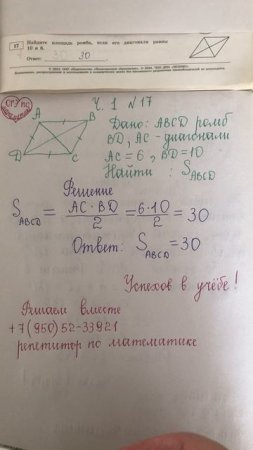 17
Найдите площадь ромба, если его диагонали равны
10 и 6.
Ответ: 30
Ч. 1 №17
A
B
D
C
Дано: ABCD ромб
BD, AC - диагонали
AC = 6, BD = 10
Найти: S ABCD
Решение
S ABCD = AC · BD / 2 = 6·10 / 2 = 30
Ответ: S ABCD = 30
Успехов в учёбе!
Решаем вместе
+7(950)52-33921
репетитор по математике